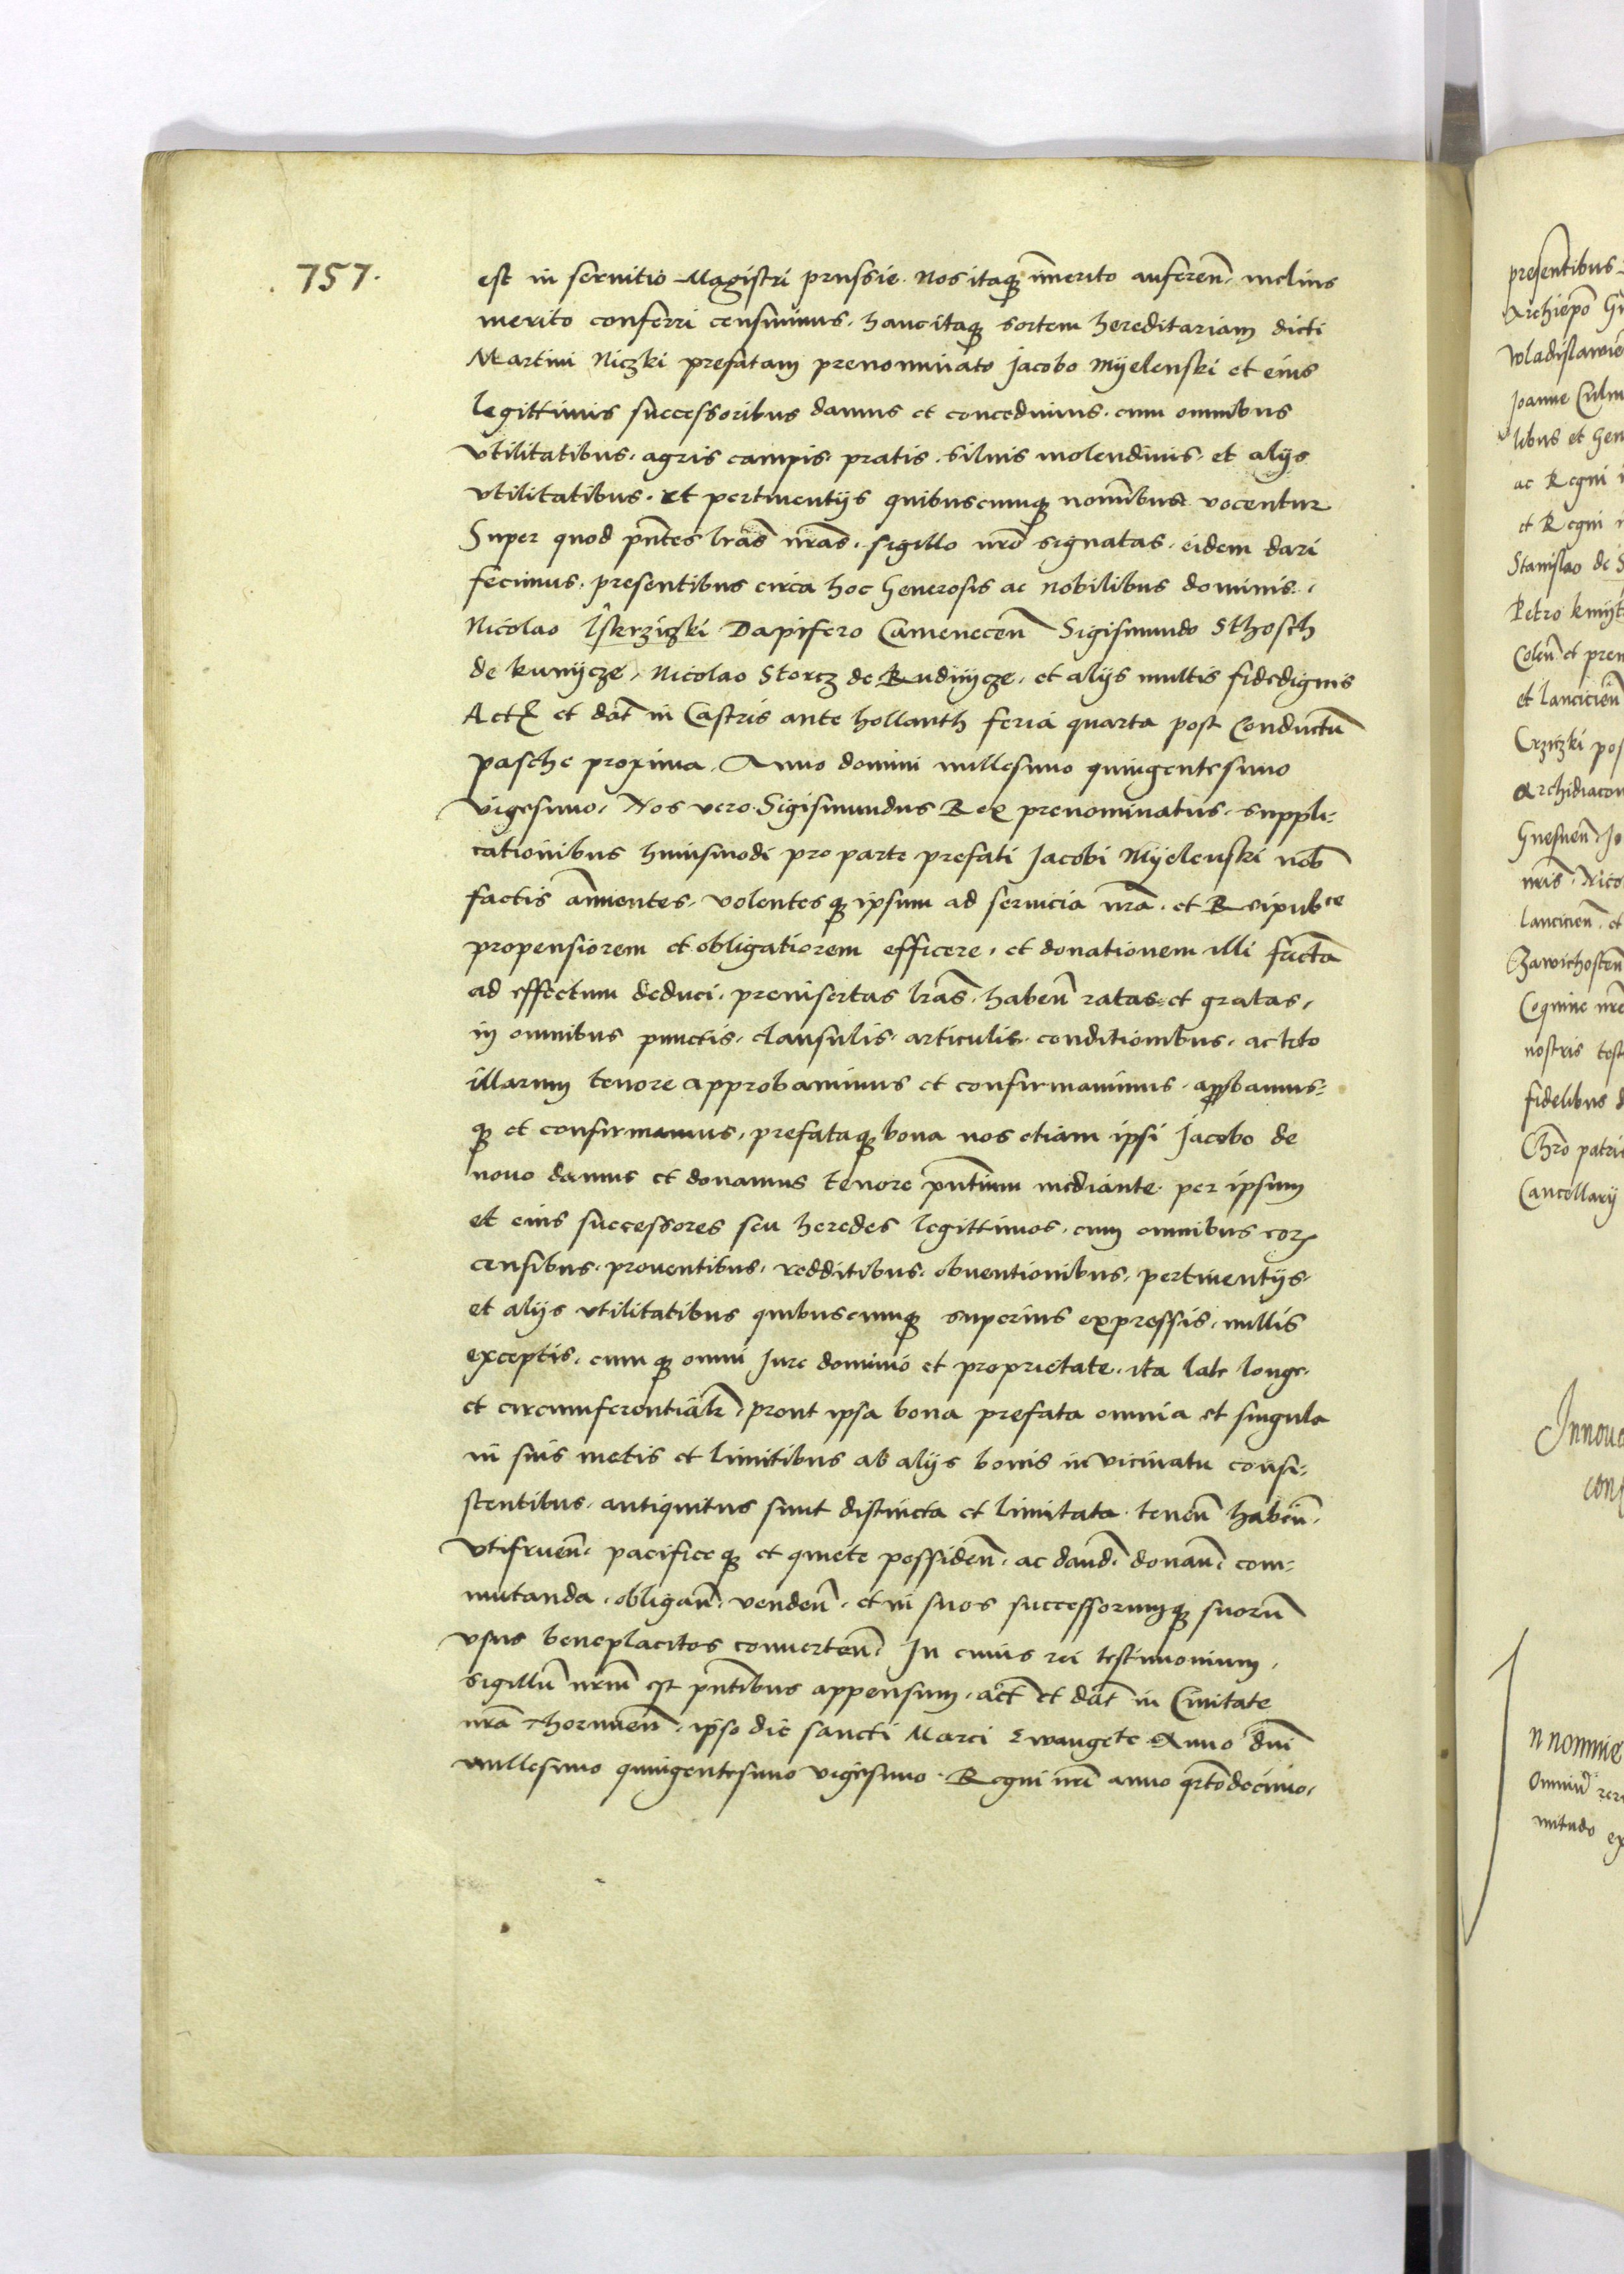 757.
est in seruitio Magistri prussie. Nos itaqȝ īmerito auferen̄. melius
merito conferri censuimus. hanc itaqȝ sortem hereditariam dicti
Martini Niczki prefatam prenominato Jacobo Myelenski et eius
legittimis successoribus damus et concedimus. cum omnibus
vtilitatibus. agris campis. pratis. siluis molendinis. et alijs
vtilitatibus. et pertinentijs quibuscumqȝ nominibus vocentur
Super quod pn̄tes lr̄as nr̄as. sigillo nr̄o signatas. eidem dari
fecimus. presentibus circa hoc Generosis ac Nobilibus dominis.
Nicolao Iskrziczki Dapifero Camenecen̄ Sigismundo Sthosch
de kunycze, Nicolao Storcz de Rudnycze, et alijs multis fidedignis
Act et dat̄ in Castris ante hollanth feria quarta post Conductū
pasche proxima. Anno domini millesimo quingentesimo
vigesimo. Nos vero Sigismundus Rex prenominatus. suppli-
cationibus huiusmodi pro parte prefati Jacobi Myelenski nob̄
factis annuentes. volentesqȝ ipsum ad seruicia nr̄a. et Reipubce
propensiorem et obligatiorem efficere. et donationem illi factā
ad effectum deduci. preinsertas lr̄as. haben̄ ratas et gratas,
in omnibus punctis. clausulis. articulis. conditionibus. ac toto
illarum tenore approbauimus et confirmauimus. approbamus-
qȝ et confirmamus. prefataqȝ bona nos etiam ipsi Jacobo de
nouo damus et donamus tenore pn̄tium mediante. per ipsum
et eius successores seu heredes legittimos. cum omnibus eorꝝ
censibus. prouentibus. redditibus. obuentionibus. pertinentijs.
et alijs vtilitatibus quibuscumqȝ superius expressis. nullis
exceptis. cumqȝ omni Jure dominio et proprietate. ita late longe.
et circumferentialr̄. prout ipsa bona prefata omnia et singula
in suis metis et limitibus ab alijs bonis in vicinatu consi-
stentibus. antiquitus sunt distincta et limitata. tenen̄ haben̄.
vtifruen̄. pacificeqȝ et quiete possiden̄. ac dand̄. donan̄. com-
mutanda. obligan̄. venden̄. et in suos successorumqȝ suorū
vsus beneplacitos conuerten̄. In cuius rei testimonium.
Sigillū nrm̄ est pn̄tibus appensum. act̄ et dat̄ in Ciuitate
nr̄a Thorunen̄. ipso die sancti Marci Ewangete Anno dn̄i
millesimo quingentesimo vigesimo. Regni nr̄i anno qrtodecimo.
presentibus
Archiepō
Wladislawie
Joanne Culm
libus et Gen
ac Regni
et Regni
Stanislao de
Petro kmyt
Colen̄ et pren
et lancicien̄
Crziczki pos
Archidiacon
Gnesnen̄. Jo
nr̄is. Nico
lancicien̄. et
Zawichosten̄
Coquine nr̄e
nostris test
fidelibus
Chr̄o patri
Cancellarij
Innoua
con
n nomine
Omniū rer
mitudo